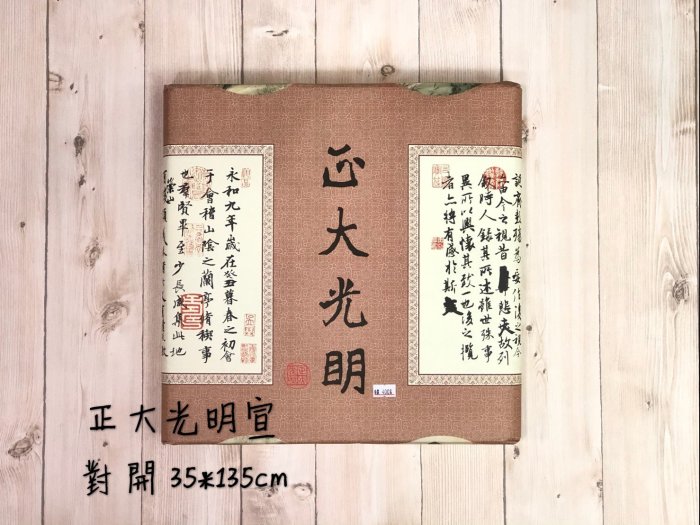 正大光明
永和九年歲在癸丑暮春之初會
于會稽山陰之蘭亭脩禊事
也羣賢畢至少長咸集此地
誕齊彭殤為妄作後之視今
由今之視昔
悲夫故列
敘時人錄其所述雖世殊事
異所以興懷其致一也後之攬
者亦將有感於斯
正大光明宣
對開 35*135cm